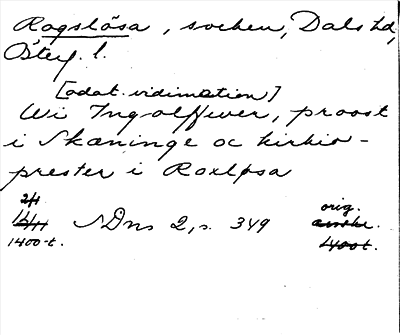 Rogslösa, socken, Dals hd,
Österg. l.
[odat. vidimation]
Wi Ingolffwer, proost
i Skæninge oc kirkio-
prester i Roxløsa
2/1
1400-t. SDns 2, s. 349 orig.
1400t.